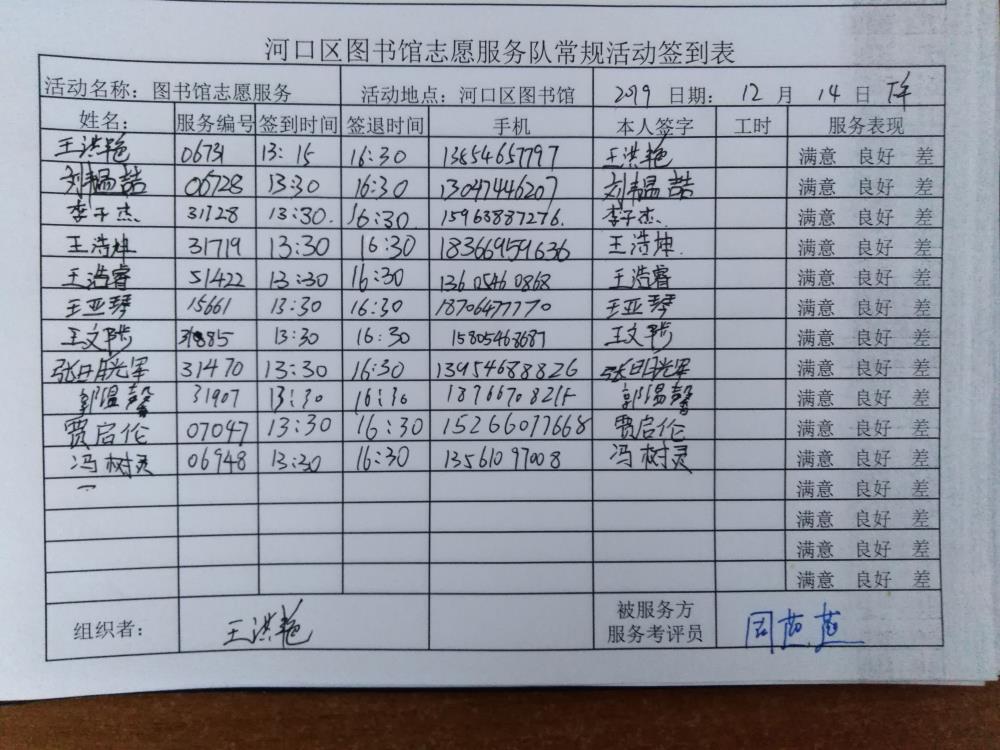 河口区图书馆志愿服务队常规活动签到表
活动名称：图书馆志愿服务 活动地点：河口区图书馆 2019 日期： 12 月 14 日 下午
姓名： 服务编号 签到时间 签退时间 手机 本人签字 工时 服务表现
王洪艳 06731 13:15 16:30 13854657797 王洪艳 满意 良好 差
刘韫喆 06728 13:30 16:30 13047446207 刘韫喆 满意 良好 差
李子杰 31728 13:30. 16:30. 15963887276. 李子杰 满意 良好 差
王浩坤 31719 13:30 16:30 18366959636 王浩坤. 满意 良好 差
王浩睿 51422 13:30 16:30 13605460868 王浩睿 满意 良好 差
王亚琴 15661 13:30 16:30 18706477770 王亚琴 满意 良好 差
王文 13:30 16:30 15805468687 王文 满意 良好 差
张 31470 13:30 16:30 13954688826 张 满意 良好 差
郭温馨 31907 13:30 16:30 18766708215 郭温馨 满意 良好 差
贾启伦 07047 13:30 16:30 15266077668 贾启伦 满意 良好 差
冯树灵 06948 13:30 16:30 13561097008 冯树灵 满意 良好 差
满意 良好 差
满意 良好 差
满意 良好 差
满意 良好 差
组织者： 王洪艳 被服务方
服务考评员 周燕燕